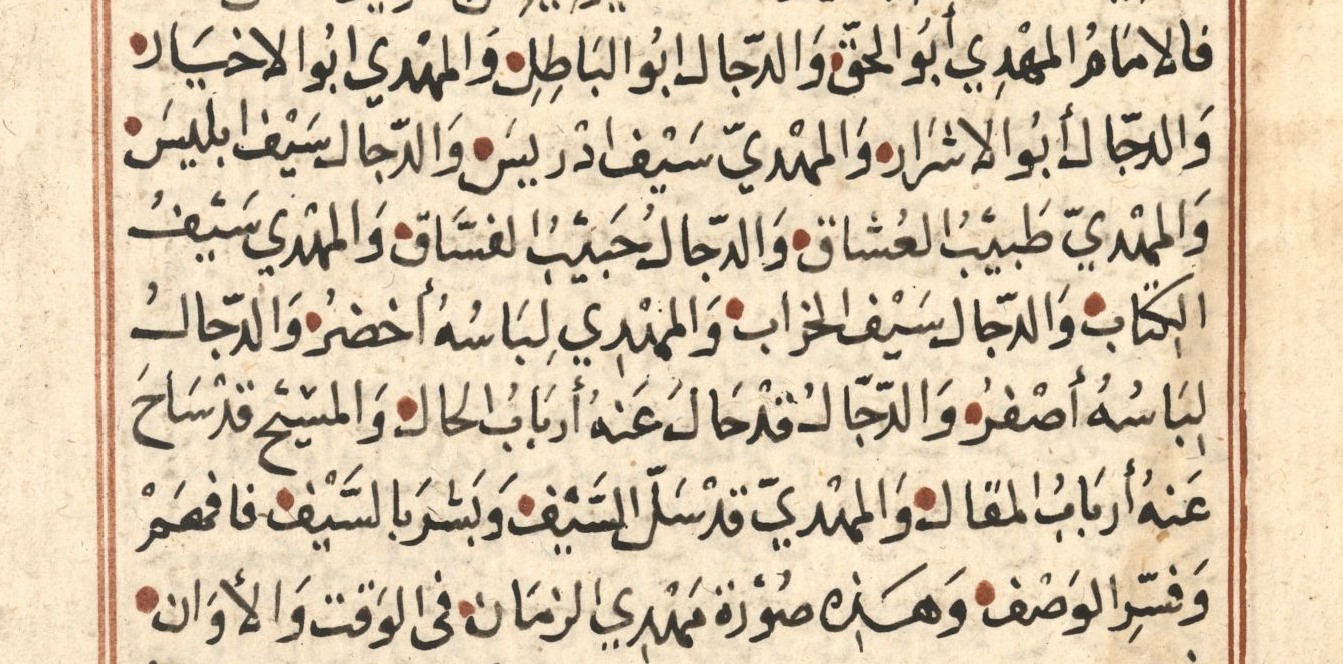 فالامَامُ المهْدِي أَبُو الحَقّ وَالدّجال ابُو البَاطِلِ وَالمهْدي ابُو الاخيَار
وَالدجّال أبُو الاشرَار وَالمهْديّ سَيْف ادْريسَ وَالدّجال سَيْف ابليسَ
وَالمهْديّ طَبيْبُ العُشاق وَالدّجالُ حَبيْبُ الفسَّاق وَالمهْدي سَيْفُ
الكتَاب وَالدّجال سَيْف الخرَاب وَالمهْدِي لِبَاسُهُ أخضرُ وَالدّجالُ
لِبَاسُهُ أصْفرُ وَالدّجّالُ قدْ حَالَ عَنهُ أربَابُ الحَال وَالمسَيْح قدْ سَاحَ
عَنهُ أربَابُ المقَال وَالمهْديّ قدْ سَلّ السَّيْف وَبَشرَ بالسَّيْف فافهَمْ
وَفسّرِ الوَصْف وَهَذِه صُوْرَة مَهْدِي الزمَان فى الوَقت وَالأوَان